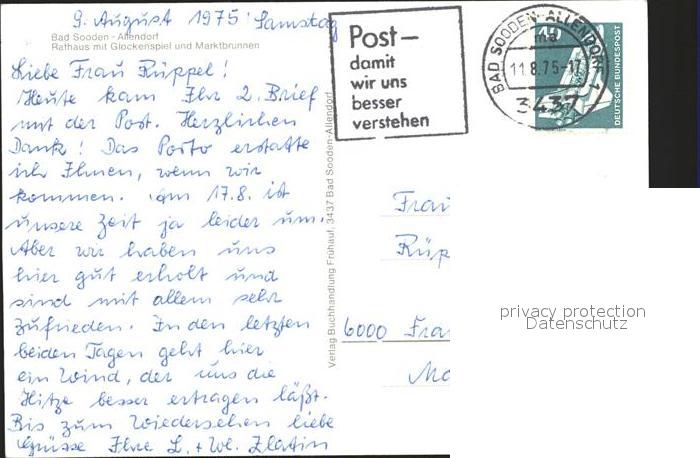 9. August 1975 Samstag
Bad Sooden - Allendorf
Rathaus mit Glockenspiel und Marktbrunnen
Liebe Frau Rüppel!
Heute kam Ihr 2. Brief
mit der Post. Herzlichen
Dank! Das Porto erstatte
ich Ihnen, wenn wir
kommen. Am 17.8. ist
unsere Zeit ja leider um.
Aber wir haben uns
hier gut erholt und
sind mit allem sehr
zufrieden. In den letzten
beiden Tagen geht hier
ein Wind, der uns die
Hitze besser ertragen läßt.
Bis zum Wiedersehen liebe
Grüsse Ihre L. + W. Zlatin
Verlag Buchhandlung Frühauf, 3437 Bad Sooden-Allendorf
Post –
damit
wir uns
besser
verstehen
BAD SOODEN-ALLENDORF 1
11.8.75-17
3437
40
DEUTSCHE BUNDESPOST
Frau
Rüp
6000 Fra
Ma
privacy protection
Datenschutz